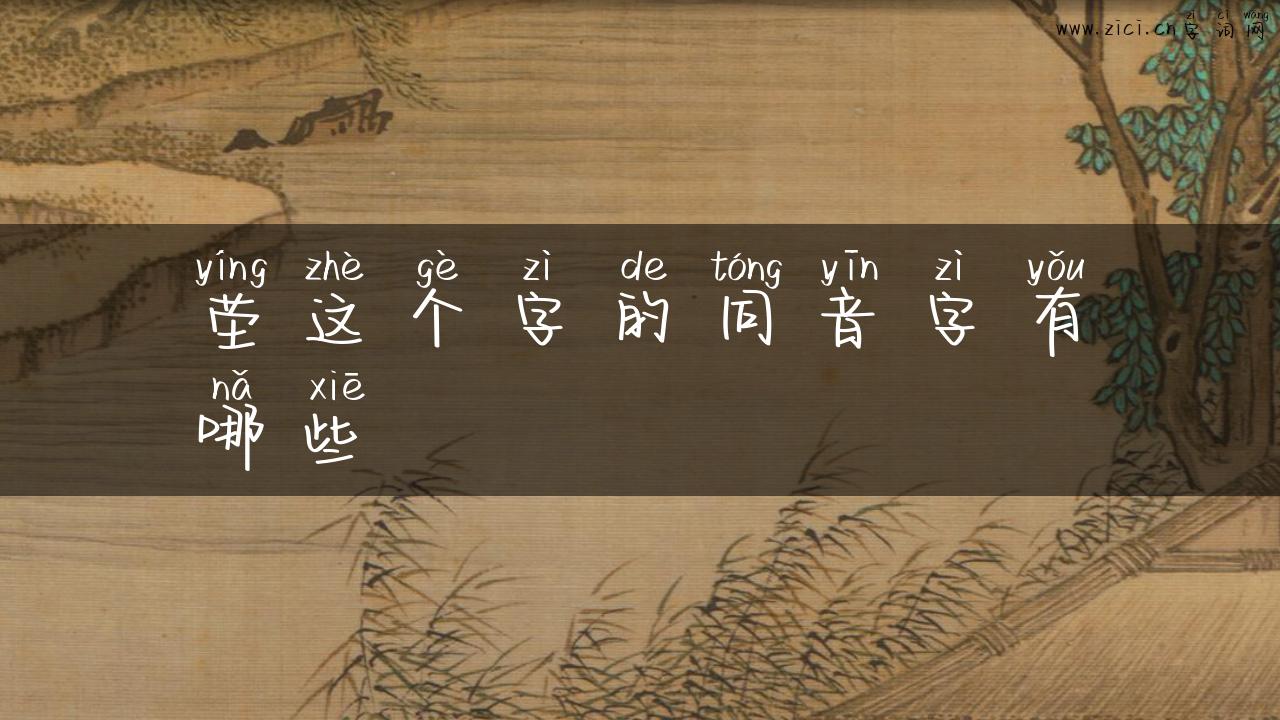 zì cí wǎng
www.zici.cn字词网
yíng zhè gè zì de tóng yīn zì yǒu
茔这个字的同音字有
nǎ xiē
哪些